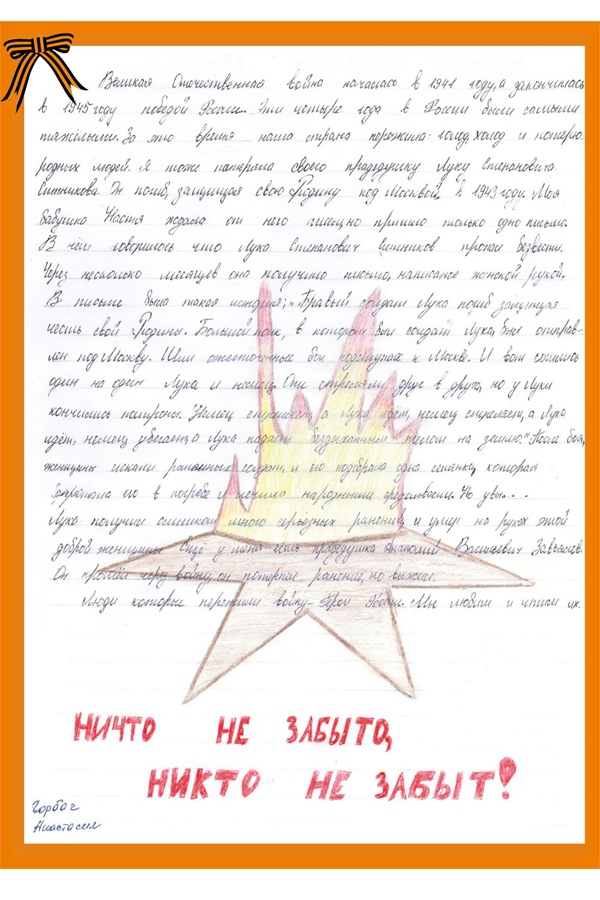 Великая Отечественная война началась в 1941 году, а закончилась
в 1945 году победой России. Эти четыре года в России были самыми
тяжёлыми. За это время наша страна пережила: голод, холод и потерю
родных людей. Я тоже потеряла своего прадедушку Луку Степановича
Ситникова. Он погиб, защищая свою Родину под Москвой, в 1943 году. Моя
бабушка Настя ждала от него письмо пришло только одно письмо.
В нём говорилось что Лука Степанович Ситников пропал безвести.
Через несколько месяцев она получила письмо, написаное женской рукой.
В письме была такая история; „Бравый солдат Лука погиб защищая
честь свой Родины. Большой полк, в котором был солдат Лука, был отправ-
лен под Москву. Шли ожесточённые бои подступах к Москве. И вот сошлись
один на один Лука и немец. Они стреляли друг в друга, но у Луки
кончились патроны. Немец стреляет, а Лука идёт, немец стреляет, а Лука
идёт, немец убегает, а Лука падает бездыханным телом на землю." После боя,
женщины искали раненных солдат, и его подобрала одна селянка, которая
его в погребе и лечила народными средствами. Но увы...
Лука получил слишком много серьёзных ранений, и умер на руках этой
доброй женщины. Ещё у меня есть прадедушка Васильевич Завьялов.
Он прошёл через войну, он потерпел ранение, но выжил.
Люди которые пережили войну - Герои России. Мы любим и чтим их.
НИЧТО НЕ ЗАБЫТО,
НИКТО НЕ ЗАБЫТ!
Горбач
Анастасия